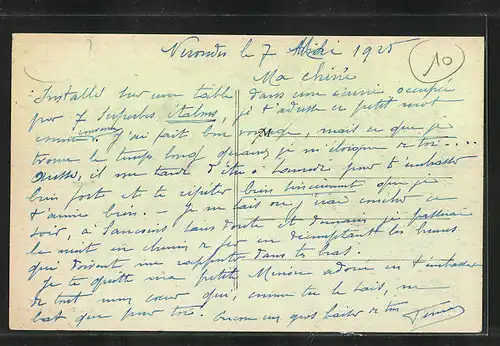 Nérondes le 7 1925
10
Ma chérie
Installé sur une table dans une écurie occupée
par 7 superbes étalons, je t'adresse ce petit mot
comme convenu j'ai fait bon voyage, mais ce que je
trouve le temps long quand je m'éloigne de toi.....
Aussi, il me tarde d'être à pour t'embrasser
bien fort et te répéter bien tendrement que je
t'aime bien. - Je ne sais où j'irai coucher ce
soir, à Sancoins sans doute et demain je passerai
la nuit en chemin de fer en décomptant les heures
qui doivent me rapprocher dans tes bras.
Je te quitte ma petite adorée en t'embrassant
de tout mon cœur qui, comme tu le sais, ne
bat que pour toi. Encore un gros baiser de ton
M